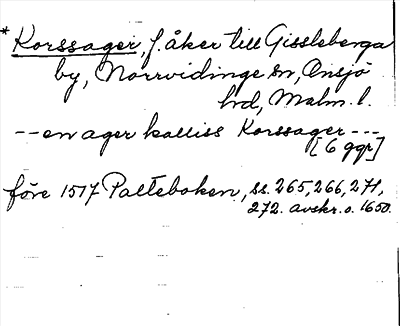 * Korssager, f. åker till Gissleberga
by, Norrvidinge sn, Onsjö
hd, Malm. l.
-- en ager kalliss Korssager ---
[6 ggr]
före 1517 Palteboken, ss. 265, 266, 271,
272. avskr. o. 1650.